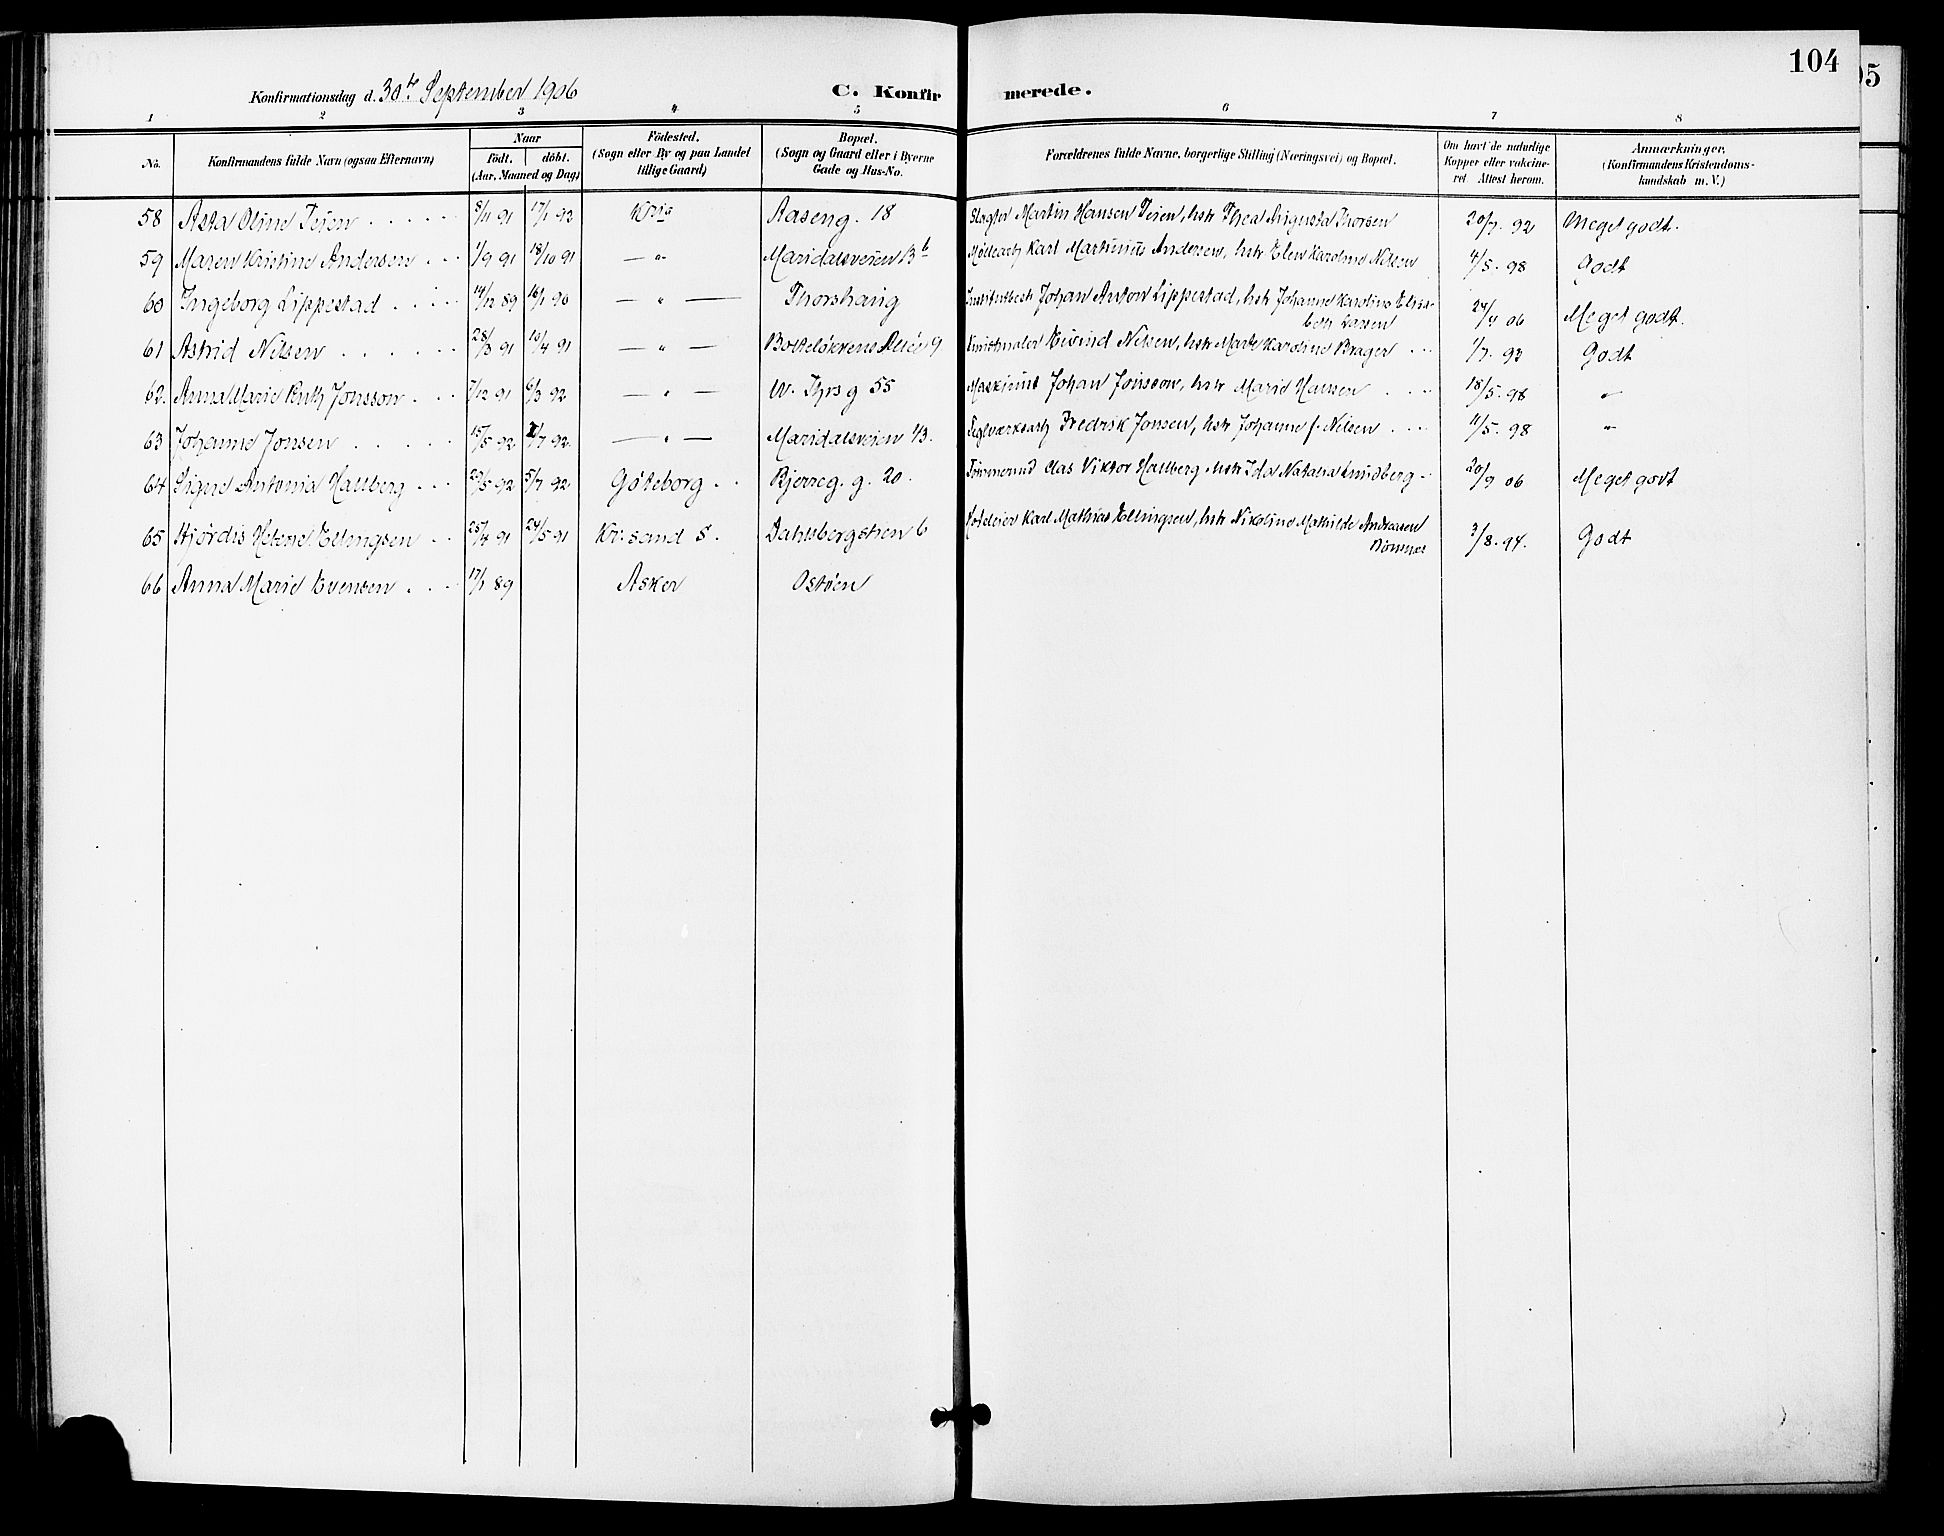 104
95
Konfirmationsdag d. 30te September 1906
C. Konfirmerede.
1 2 3 4 5 6 7 8
No. Konfirmandens fulde Navn (ogsaa Efternavn) Naar født. døbt. (Aar, Maaned og Dag) Fødested. (Sogn eller By og paa Landet tillige Gaard) Bopæl. (Sogn og Gaard eller i Byerne Gade og Hus-No. Forældrenes fulde Navne, borgerlige Stilling (Næringsvei) og Bopæl. Om havt de naturlige Kopper eller vakcineret. Attest herom. Anmærkninger. (Konfirmandens Kristendomskundskab m. V.)
58 Asta Oline Teien 8/11 91 17/1 92 Kria Aaseng. 18 Slagter Martin Hansen Teien, hstr Thea Augusta Thorsen 20/7. 92 Meget godt.
59 Maren Kristine Andersen 1/9 91 18/10 91 — " — Maridalsveien 13 b Møllearb Karl Martinius Andersen, hstr Elen Karoline Nilsen 4/5. 98 Godt
60 Ingeborg Lippestad 14/12 89 16/1 90 — " — Thorshaug Institutbest Johan Anton Lippestad, hstr Johanne Karoline Elisabeth Larsen 24/4 06 Meget godt.
61 Astrid Nilsen 28/3 91 10/4 91 — " — Bolteløkkens Allé 9 Kunstmaler Eivind Nilsen, hstr Marte Karoline Brager 1/7. 93 Godt
62. Anna Marie Ruth Jonsson 7/12 91 6/3 92 — " — W. Thrs g 55 Maskinist Johan Jonsson, hstr Marie Hansen 18/5. 98 "
63 Johanne Jonsen 15/5 92 /7 92 — " — Maridalsveien 43. Teglværksarb Fredrik Jonsen, hstr Johanne f. Nilsen 11/5. 98 "
64 Signe Antonia Hallberg 23/5 92 5/7 92 Göteborg Bjerreg. g. 20. Clas Viktor Hallberg hstr Ida Natalia Lundberg 20/9 06 Meget godt
65 Hjørdis Helene Ellingsen 25/4 91 24/5 91 Kr.sand S. Dahlsbergstien 6 Karl Mathias Ellingsen, hstr Nikoline Mathilde Andreasen 3/8. 94. Godt
66 Anna Marie Evensen 17/1 89 Asker Ostøen